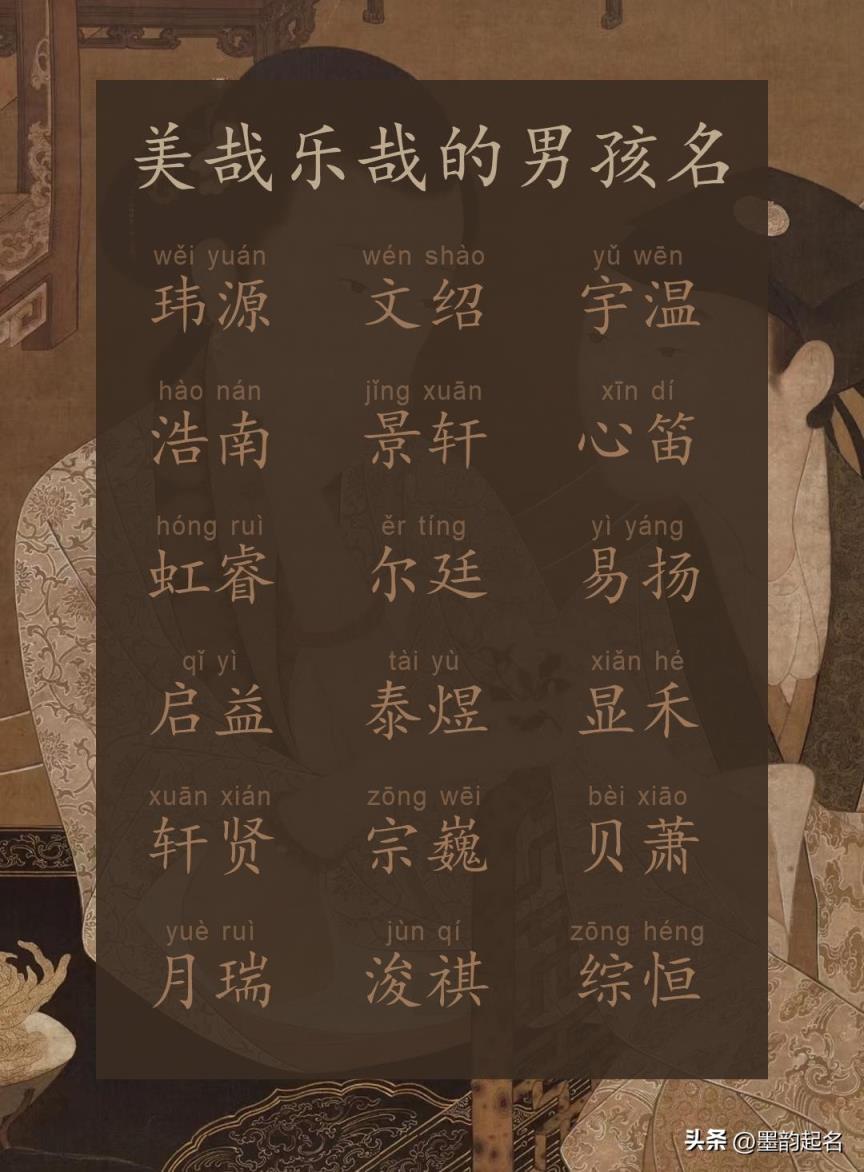 美哉乐哉的男孩名
wěi yuán wén shào yǔ wēn
玮源 文绍 宇温
hào nán jǐng xuān xīn dí
浩南 景轩 心笛
hóng ruì ěr tíng yì yáng
虹睿 尔廷 易扬
qǐ yì tài yù xiǎn hé
启益 泰煜 显禾
xuān xián zōng wēi bèi xiāo
轩贤 宗巍 贝萧
yuè ruì jùn qí zōng héng
月瑞 浚祺 综恒
头条 @墨韵起名